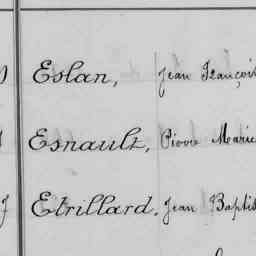 Eslan, Jean François
Esnault, Pierre Marie
Etrillard. Jean Baptis